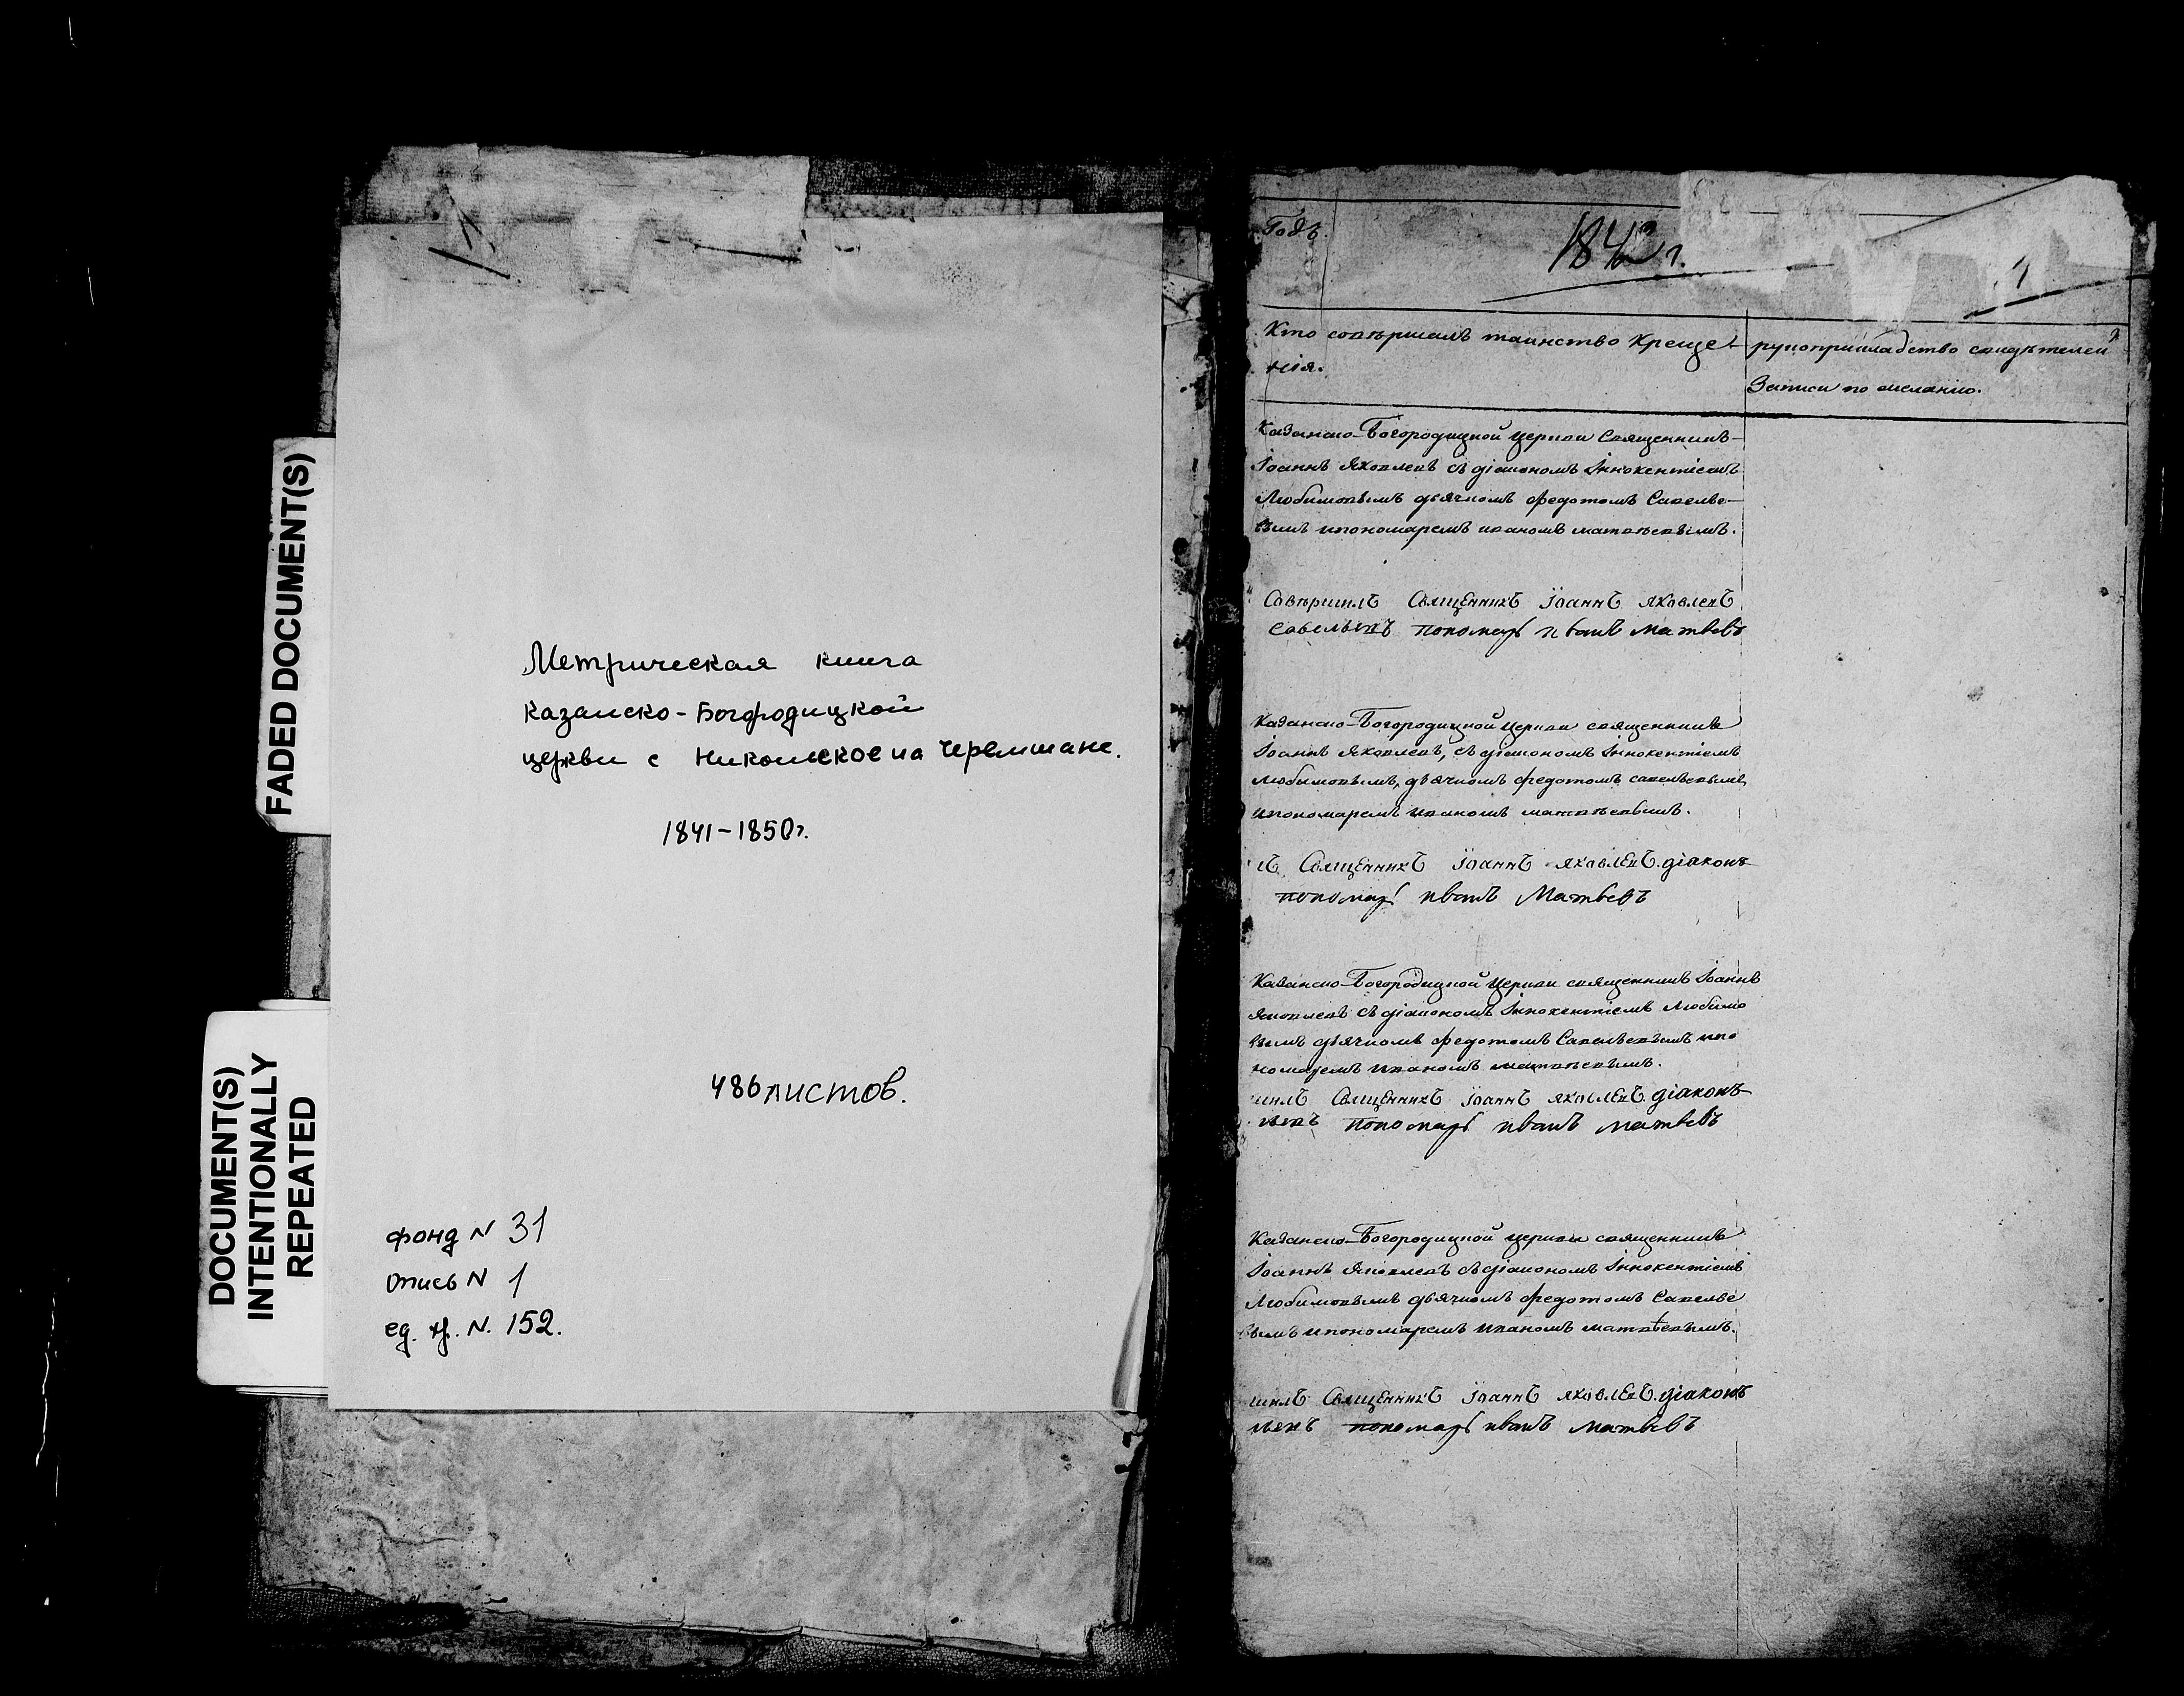 FADED DOCUMENT(S)
DOCUMENT(S)
INTENTIONALLY
REPEATED
Метрическая книга
Казанско-Богородицкой
церкви с Никольское на Черемшане.
1841-1850г.
486 листов.
фонд N 31
опись N 1
ед. хр. N. 152.
Годъ.
184 г.
1
Кто совершалъ таинство Креще-
нія.
рукоприкладство свидѣтелей
Записи по желанію.
Казанско-Богородицкой церкви Священникъ
Іоаннъ Яковлевъ съ діакономъ Іннокентіемъ
Любимовымъ дьячкомъ Федотомъ Савелье-
вымъ ипономаремъ иваномъ матвѣевымъ.
Совѣршилъ Священникъ Іоаннъ Яковлевъ
Савельевъ пономарь иванъ матвевъ
Казанско-Богородицкой церкви священникъ
Іоаннъ Яковлевъ, съ діакономъ Іннокентіемъ
любимовымъ, дьячкомъ федотомъ савельевымъ
ипономаремъ иваномъ матвѣевымъ.
лъ Священникъ Іоаннъ Яковлевъ. діаконъ
пономарь иванъ Матвевъ
Казанско-Богородицкой церкви священникъ Іоаннъ
Яковлевъ съ діакономъ Іннокентіемъ Любимо
вымъ дьячкомъ федотомъ Савельевымъ ипо
номаремъ иваномъ матвѣевымъ.
шилъ Священникъ Іоаннъ Яковлевъ. діаконъ
льевъ пономарь иванъ матвевъ
Казанско-Богородицкой церкви священникъ
Іоаннъ Яковлевъ съ діакономъ Іннокентіемъ
Любимовымъ дьячкомъ федотомъ Савелье
вымъ ипономаремъ иваномъ матвѣевымъ.
шилъ Священникъ Іоаннъ Яковлевъ. діаконъ
льевъ пономарь иванъ матвевъ